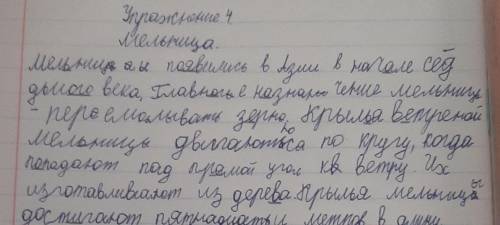 Упражнение 4
Мельница.
Мельницы появились в Азии в начале сед
ьмого века. Главное назначение мельницы
- перемалывать зерно. Крылья ветреной
мельницы двигаются по кругу, когда
попадают под прямой угол к ветру. Их
изготавливают из дерева. Крылья мельницы
достигают пятнадцати метров в длину